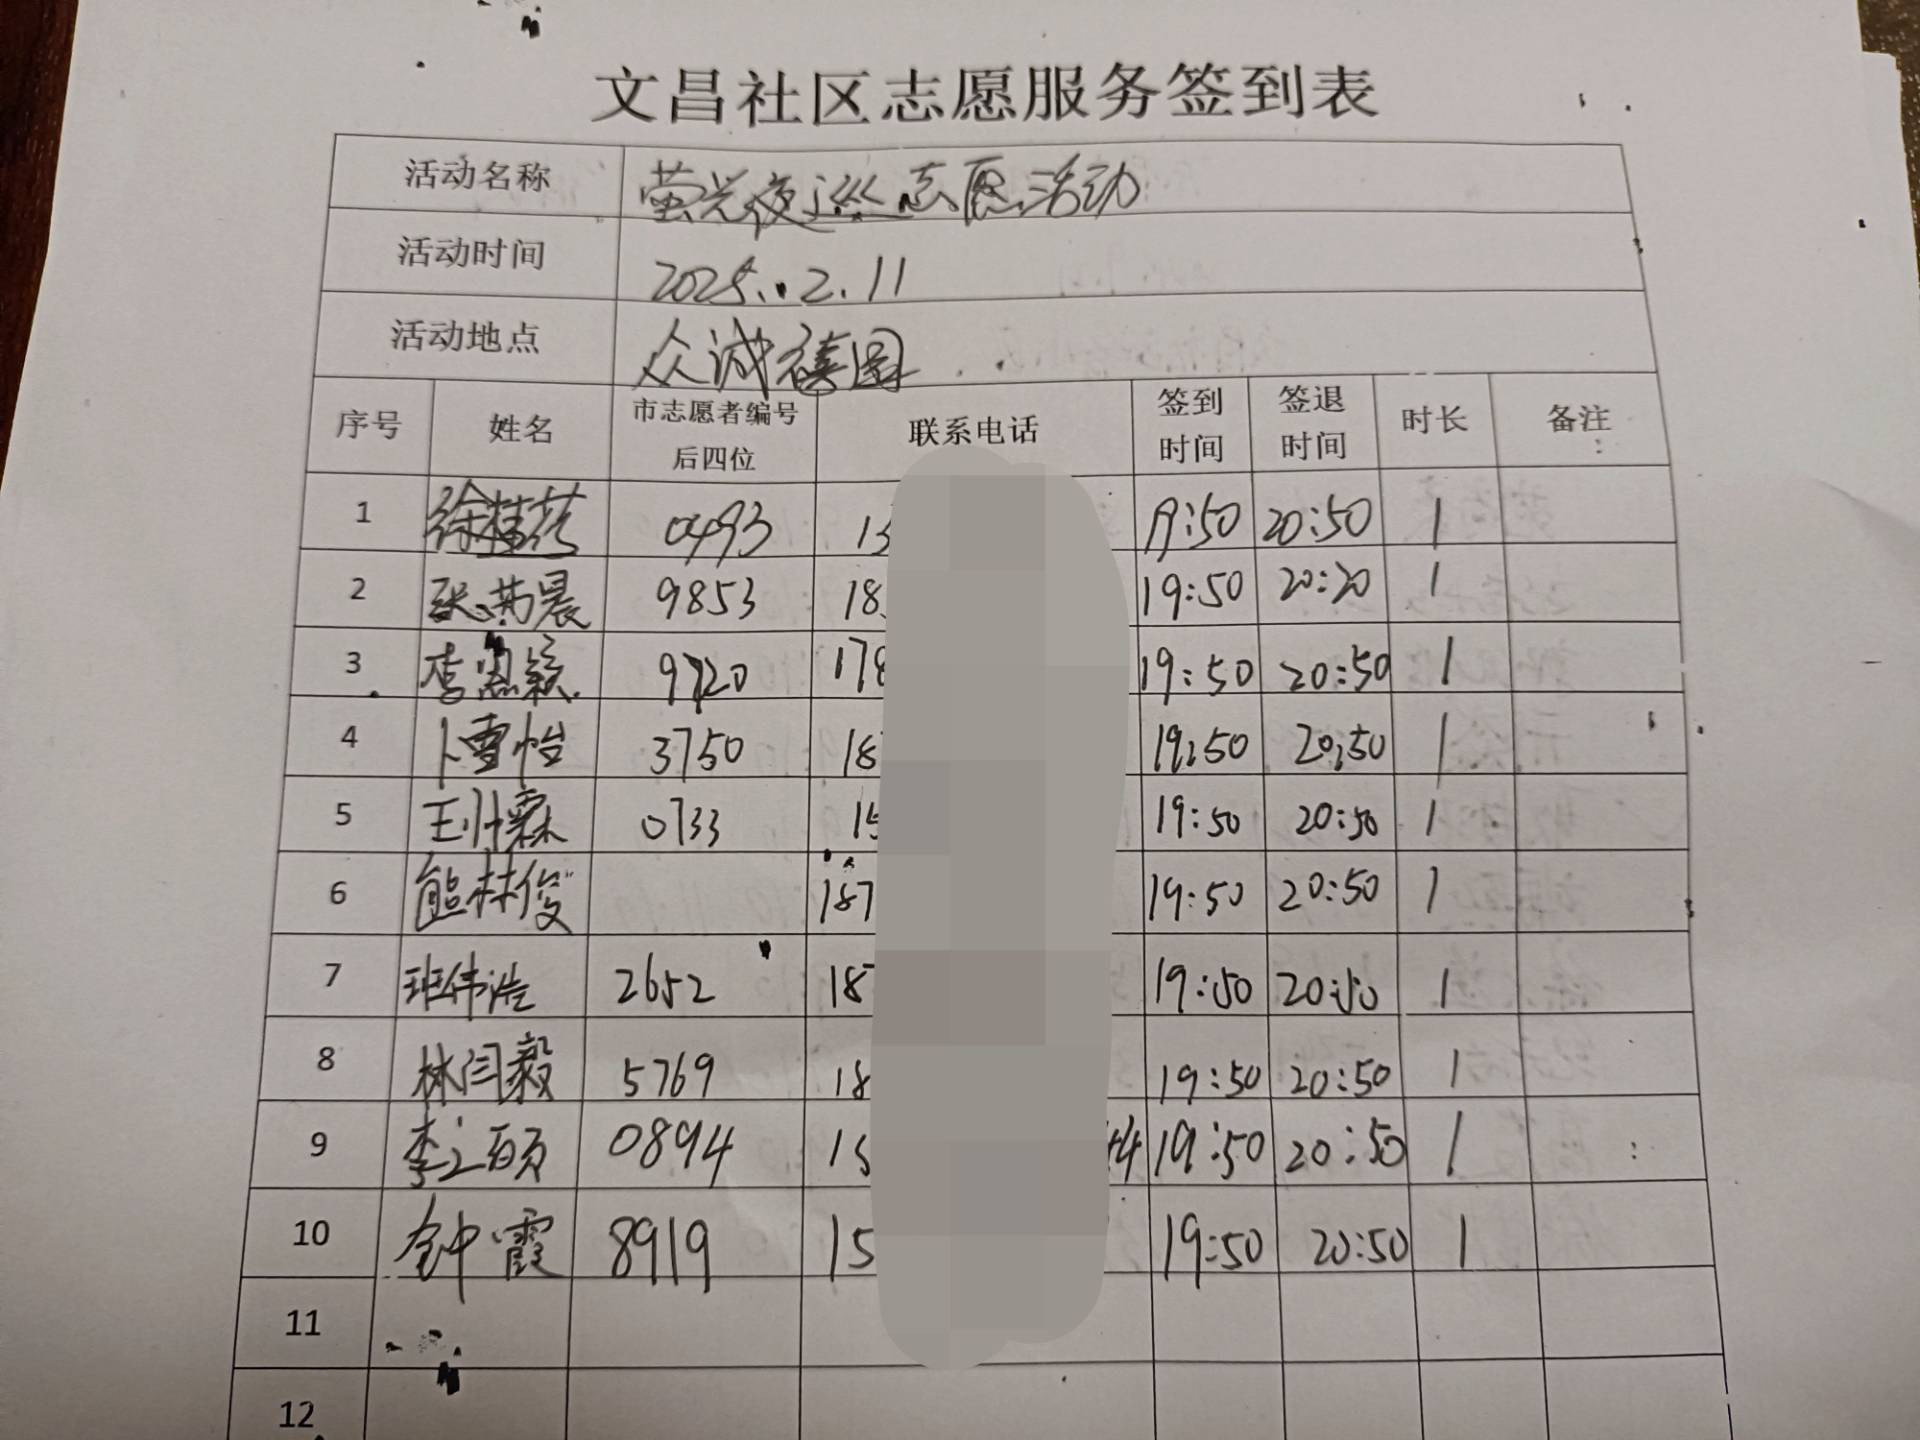 文昌社区志愿服务签到表
活动名称 萤光夜巡志愿活动
活动时间 2025.2.11
活动地点 众诚禧园
序号 姓名 市志愿者编号后四位 联系电话 签到时间 签退时间 时长 备注
1 徐桂花 0493 13 19:50 20:50 1
2 9853 18 19:50 20:20 1
3 李思颖 9720 178 19:50 20:50 1
4 卜雪怡 3750 18 19:50 20:50 1
5 0733 15 19:50 20:50 1
6 熊林俊 187 19:50 20:50 1
7 班伟浩 2652 18 19:50 20:50 1
8 林闫毅 5769 18 19:50 20:50 1
9 0894 15 44 19:50 20:50 1
10 钟霞 8919 15 19:50 20:50 1
11
12